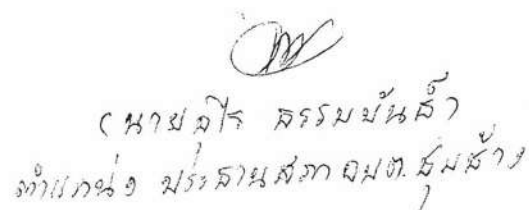 (นายอุไร ธรรมบันส์)
ตำแหน่ง ประธานสภา อบต.สุมส้าง